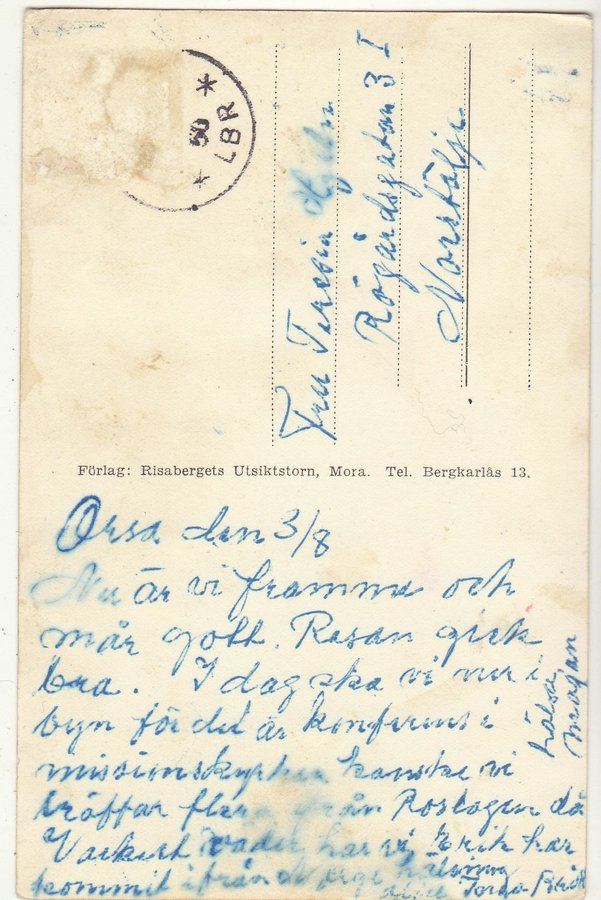 50
LBR
Fru Teresia
Rögårdsgatan 3 I
Norrtälje
Förlag: Risabergets Utsiktstorn, Mora. Tel. Bergkarlås 13.
Orsa den 3/8
Nu är vi framme och
mår gott. Resan gick
bra. I dag ska vi ner i
byn för det är konferens i
missionskyrkan kanske vi
träffar flera från Roslagen då
Vackert väder har vi Erik har
kommit ifrån Norge hälsning
hälsa